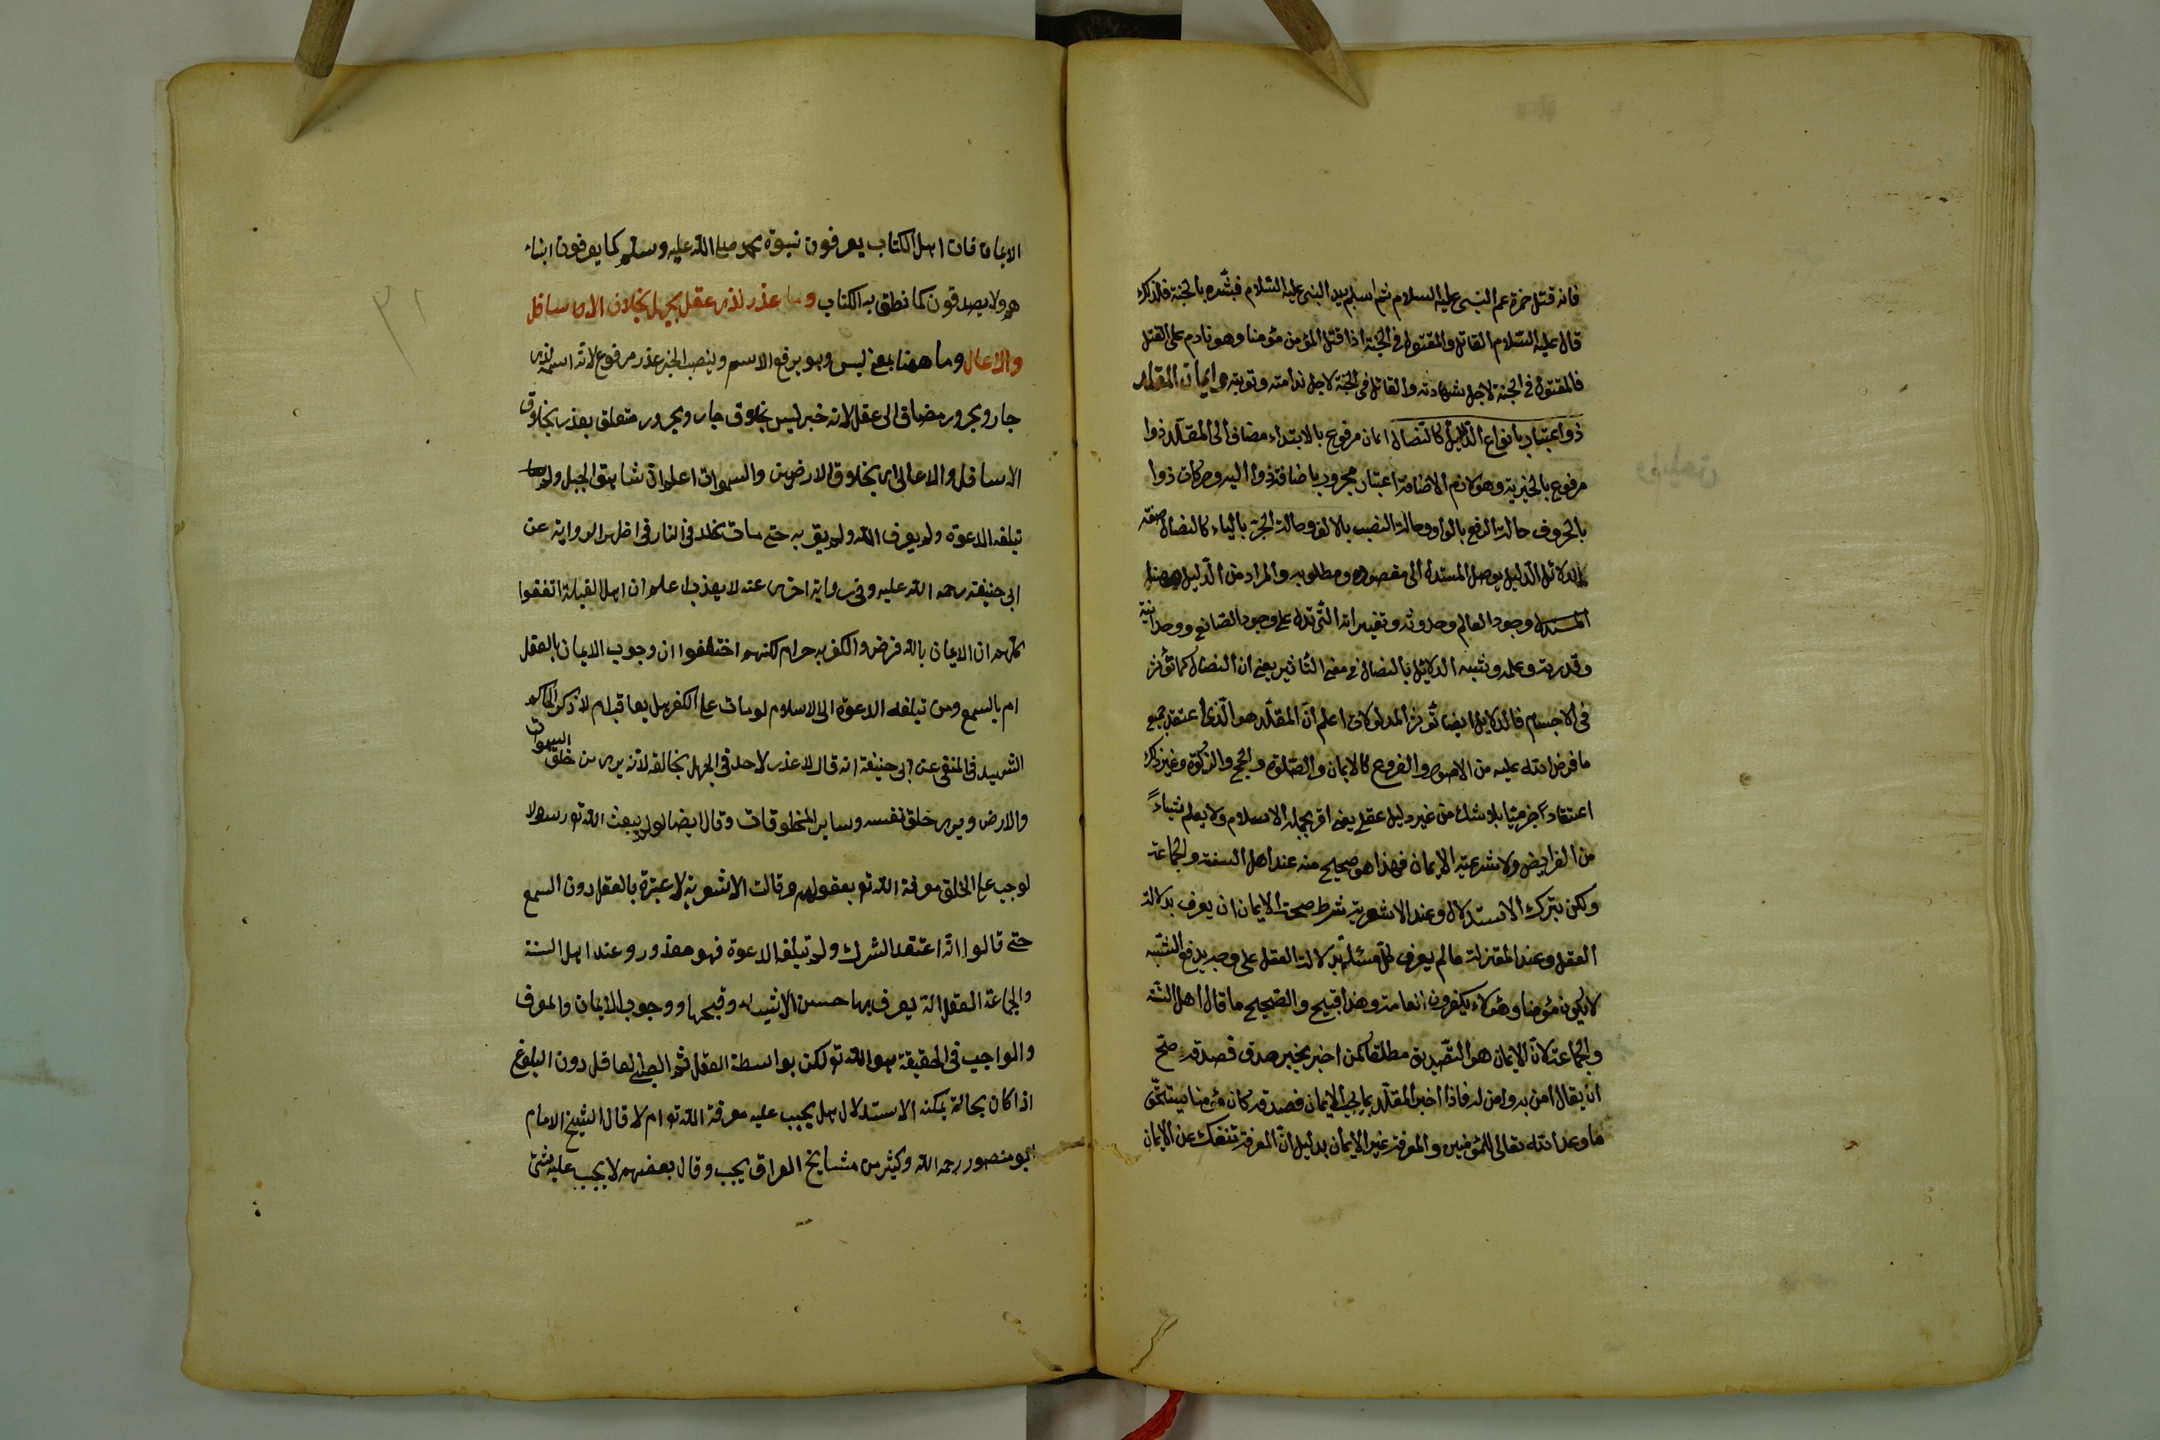 فانه قتل حمزة عم النبى عليه السلام ثم اسلم بيد النبى عليه السلام فبشره بالجنة فلذلك
قال عليه السلام القاتل والمقتول فى الجنة اذا قتل المؤمن مؤمنا وهو نادم على القتل
فالمقتول فى الجنة لاجل شهادته والقاتل فى الجنة لاجل ندامته وتوبته وايمان المقلد
ذو اعتبار بانواع الدلايل كالنصال ايمان مرفوع بالابتداء مضاف الى المقلد ذوا
مرفوع بالخبرية وهو لازم الاضافة اعتبار مجرور باضافة ذوا اليه وحركات ذوا
بالحروف حالة الرفع بالواو وحالة النصب بالالف وحالة الجر بالياء كالنصال صفة
الدلائل الدليل يوصل المستدل الى مقصوده ومطلوبه والمراد من الدليل ههنا
المستدل وجود العالم وحدوثه وتغييراته التى تدل على وجود الصانع ووحدانية
وقدرته وعلمه وتشبيه الدلايل بالنصال فى معنى التأثير يعنى ان النصال كما تؤثر
فى الاجسام فالدلايل ايضا تؤثر المدلولات اعلم ان المقلد هو الذى اعتقد جميع
ما فرض الله عليه من الاصول والفروع كالايمان والصلوة والحج والزكوة وغير ذلك
اعتقادا جزميا بلا شك من غير دليل عقلى يعنى اقر بجملة الاسلام ولا يعلم شياءً
من الفرايض ولا شرعية الايمان فهذا هو صحيح منه عند اهل السنة والجماعة
ولكن بترك الاستدلال وعند الاشعرية شرط صحة الايمان ان يعرف بدلالة
العقل وعند المعتزلة ما لم يعرف كل مسئلة بدلالة العقل على وجه يدفع الشبه
لا يكون مؤمنا وهؤلاء يكفرون العامة وهذا قبيح والصحيح ما قال اهل السنة
والجماعة لان الايمان هو التصديق مطلقا كمن اخبر بخبر صدق فصدقه صح
ان يقال امن به وامن له فاذا اخبر المقلد بما يجب الايمان فصدقه كان مؤمنا يستحق
ما وعد الله تعالى للمؤمنين والمعرفة غير الايمان بدليل ان المعرفة تنفك عن الايمان
الايمان فان اهل الكتاب يعرفون نبوة محمد صلى الله عليه وسلم كما يعرفون ابناء
هم ولا يصدقون كما نطق به الكتاب وما عذر لذى عقل بجهل بخلاق الاسافل
والاعالى وما ههنا بمعنى ليس وهو يرفع الاسم وينصب الخبر عذر مرفوع لانه اسمه لذى
جار ومجرور مضاف الى عقل لانه خبر ليس بخلاق جار ومجرور متعلق بعذر بخلاق
الاسافل والاعالى اى بخلاق الارضين والسموات اعلم ان شاهق الجبل ولم
تبلغه الدعوة ولم يعرف الله ولم يقر به حتى مات يخلد فى النار فى اظهر الرواية عن
ابى حنيفة رحمة الله عليه وفى رواية اخرى عنه لا يعذب اعلم ان اهل القبلة اتفقوا
كلهم ان الايمان بالله فرض والكفر به حرام لكنهم اختلفوا ان وجوب الايمان بالعقل
ام بالسمع ومن تبلغه الدعوة الى الاسلام لو مات على الكفر هل يعاقب ام لا ذكر الحاكم
الشهيد فى المنتقى عن ابى حنيفة انه قال لا عذر لاحد فى الجهل بخالقه لانه يرى من خلق السموات
والارض ويرى خلق نفسه وساير المخلوقات وقال ايضا لو لم يبعث الله تع رسولا
لوجب على الخلق معرفة الله تع بعقولهم وقالت الاشعرية لا عبرة بالعقل دون السمع
حتى قالوا اذا اعتقد الشرك ولم تبلغه الدعوة فهو معذور وعند اهل السنة
والجماعة العقل الة يعرف بها حسن الاشياء وقبحها ووجوب الايمان والمعرف
والواجب فى الحقيقة هو الله تع لكن بواسطة العقل ثم الصبى العاقل دون البلوغ
اذا كان بحالة يمكنه الاستدلال هل يجب عليه معرفة الله تع ام لا قال الشيخ الامام
ابو منصور رحمه الله وكثير من مشايخ العراق يجب وقال بعضهم لا يجب عليه شئ